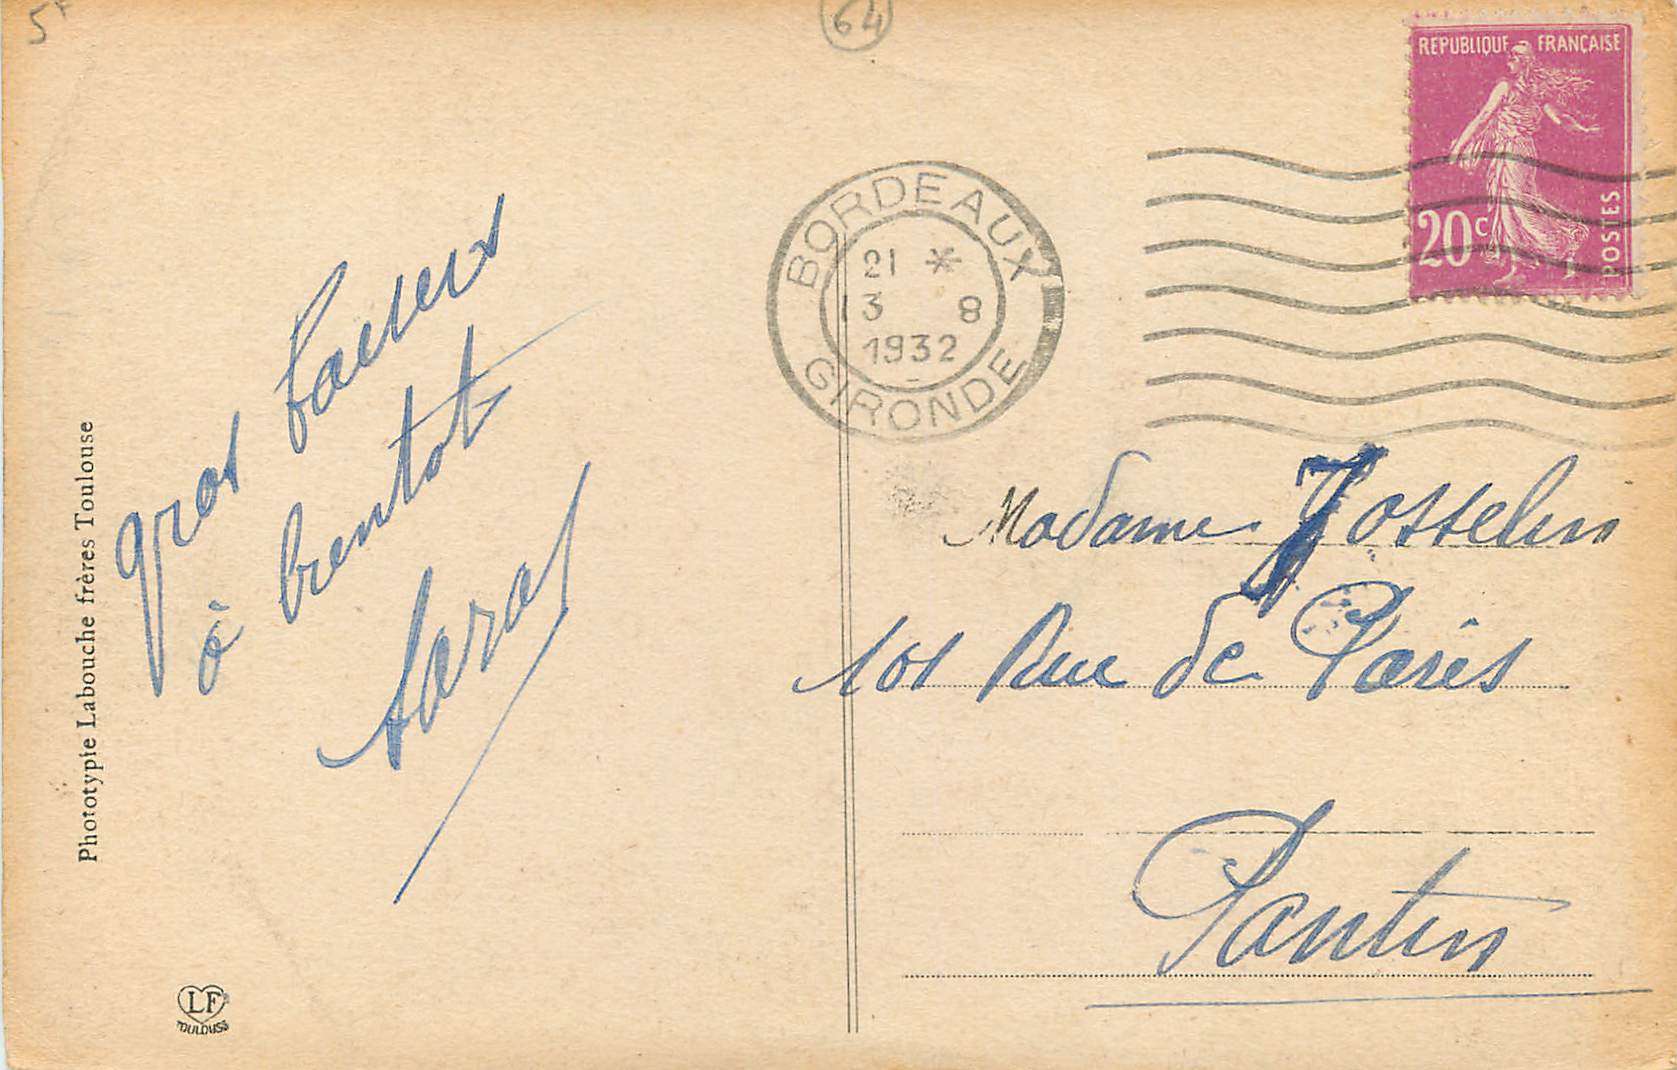 5F
64
REPUBLIQUE FRANÇAISE
20c
POSTES
BORDEAUX
21 *
13 8
1932
GIRONDE
Gros baisers
à bientôt
Madame Josselin
101 Rue de Paris
Pantin
Phototypie Labouche frères Toulouse
LF
TOULOUSE